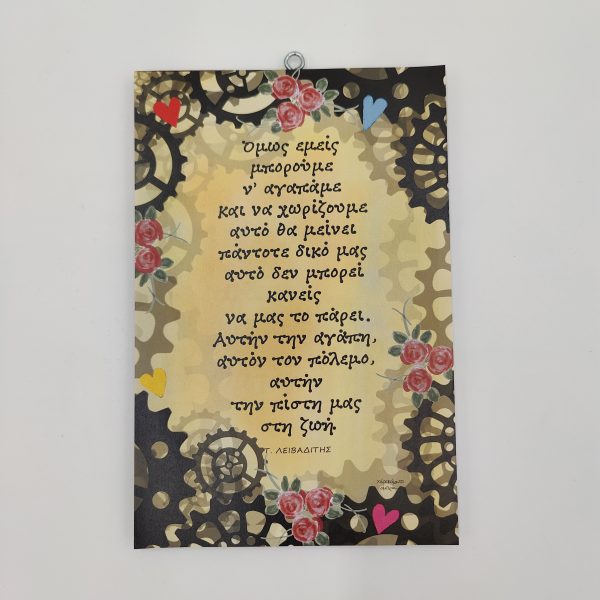 Όμως εμείς
μπορούμε
ν' αγαπάμε
και να χωρίζουμε
αυτό θα μείνει
πάντοτε δικό μας
αυτό δεν μπορεί
κανείς
να μας το πάρει.
Αυτήν την αγάπη,
αυτόν τον πόλεμο,
αυτήν
την πίστη μας
στη ζωή.
Τ. ΛΕΙΒΑΔΙΤΗΣ